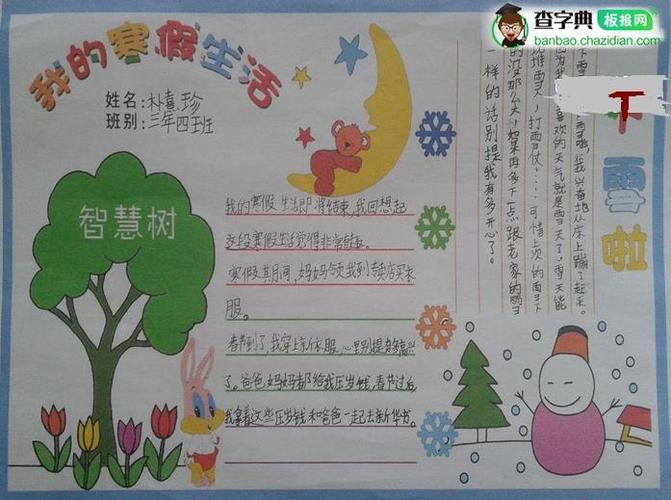 查字典 板报网
banbao.chazidian.com
我的寒假生活
姓名:朴熹珍
班别:三年四班
智慧树
我的寒假生活即将结束,我回想起
这段寒假生活觉得非常
寒假其月间,妈妈今页我到专卖店买衣
服。
春节到了,我穿上新衣服,心里别提多高兴
了。爸爸,妈妈者都给我压岁钱,春节过后
我拿着这些压岁钱和爸爸一起去新华书。
下雪啦
下雪了
雪啦,我兴奋地从床上蹦了起来。
因为我喜欢的天气就是雪天了,雪天能
堆雪人,打雪仗,……可惜上页的雪下
的没那么大,如果再多下一点跟老家的雪
一样的话别提我有多开心了。